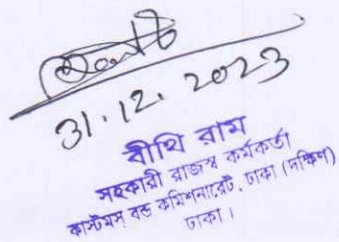 31.12.2023
বীথি রাম
সহকারী রাজস্ব কর্মকর্তা
কাস্টমস্ বন্ড কমিশনারেট, ঢাকা (দক্ষিণ)
ঢাকা।